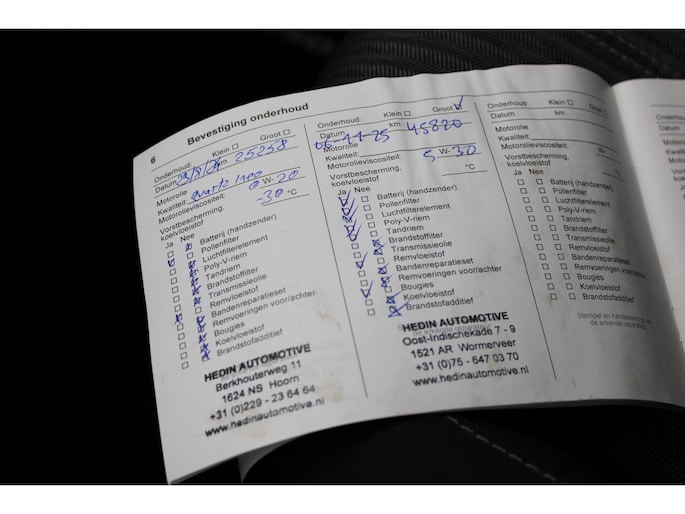 6 Bevestiging onderhoud
Onderhoud: Klein Groot
Datum 23/8/24 km 25258
Motorolie
Kwaliteit: quartz ineo
Motorolieviscositeit: 0 W- 20
Vorstbescherming,
koelvloeistof -30 °C
Ja Nee
Batterij (handzender)
Pollenfilter
Luchtfilterelement
Poly-V-riem
Tandriem
Brandstoffilter
Transmissieolie
Remvloeistof
Bandenreparatieset
Remvoeringen voor/achter
Bougies
Koelvloeistof
Brandstofadditief
HEDIN AUTOMOTIVE
Berkhouterweg 11
1624 NS Hoorn
+31 (0)229 - 23 64 64
www.hedinautomotive.nl
Onderhoud: Klein Groot
Datum 06-11-25 km 45820
Motorolie
Kwaliteit:
Motorolieviscositeit: 5 W- 30
Vorstbescherming,
koelvloeistof °C
Ja Nee
Batterij (handzender)
Pollenfilter
Luchtfilterelement
Poly-V-riem
Tandriem
Brandstoffilter
Transmissieolie
Remvloeistof
Bandenreparatieset
Remvoeringen voor/achter
Bougies
Koelvloeistof
Brandstofadditief
HEDIN AUTOMOTIVE
Oost-Indischekade 7 - 9
1521 AR Wormerveer
+31 (0)75 - 647 03 70
www.hedinautomotive.nl
Onderhoud: Klein
Datum km
Motorolie
Kwaliteit:
Motorolieviscositeit:
Vorstbescherming,
koelvloeistof
Ja Nee
Batterij (handzender)
Pollenfilter
Luchtfilterelement
Poly-V-riem
Tandriem
Brandstoffilter
Transmissieolie
Remvloeistof
Bandenreparatieset
Remvoeringen
Bougies
Koelvloeistof
Brandstofadditief